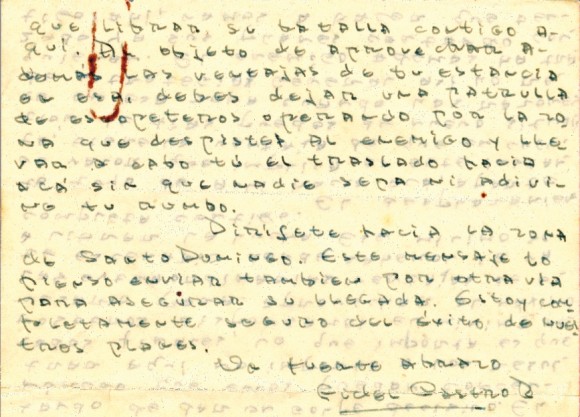 que librar, su batalla contigo a-
quí. Al objeto de aprovechar a-
demás las ventajas de tu estancia
en esa, debes dejar una patrulla
de escopeteros operando por la zo
na que despiste al enemigo y lle
var a cabo tú el traslado hacia
acá sin que nadie sepa ni adivi-
ne tu rumbo.
Dirígete hacia la zona
de Santo Domingo. Este mensaje lo
pienso enviar tambien por otra via
para asegurar su llegada. Estoy com
pletamente seguro del éxito de nues
tros planes.
Un fuerte abrazo
Fidel Castro R